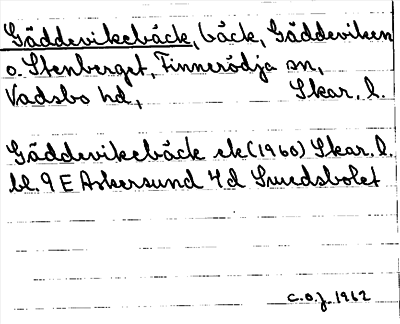 Gäddevikebäck, bäck, Gäddeviken
o. Stenberget, Finnerödja sn,
Vadsbo hd, Skar. l.
Gäddevikebäck ek (1960) Skar. l.
bl. 9 E Askersund 4 d Svedsbolet
C.O.J. 1962